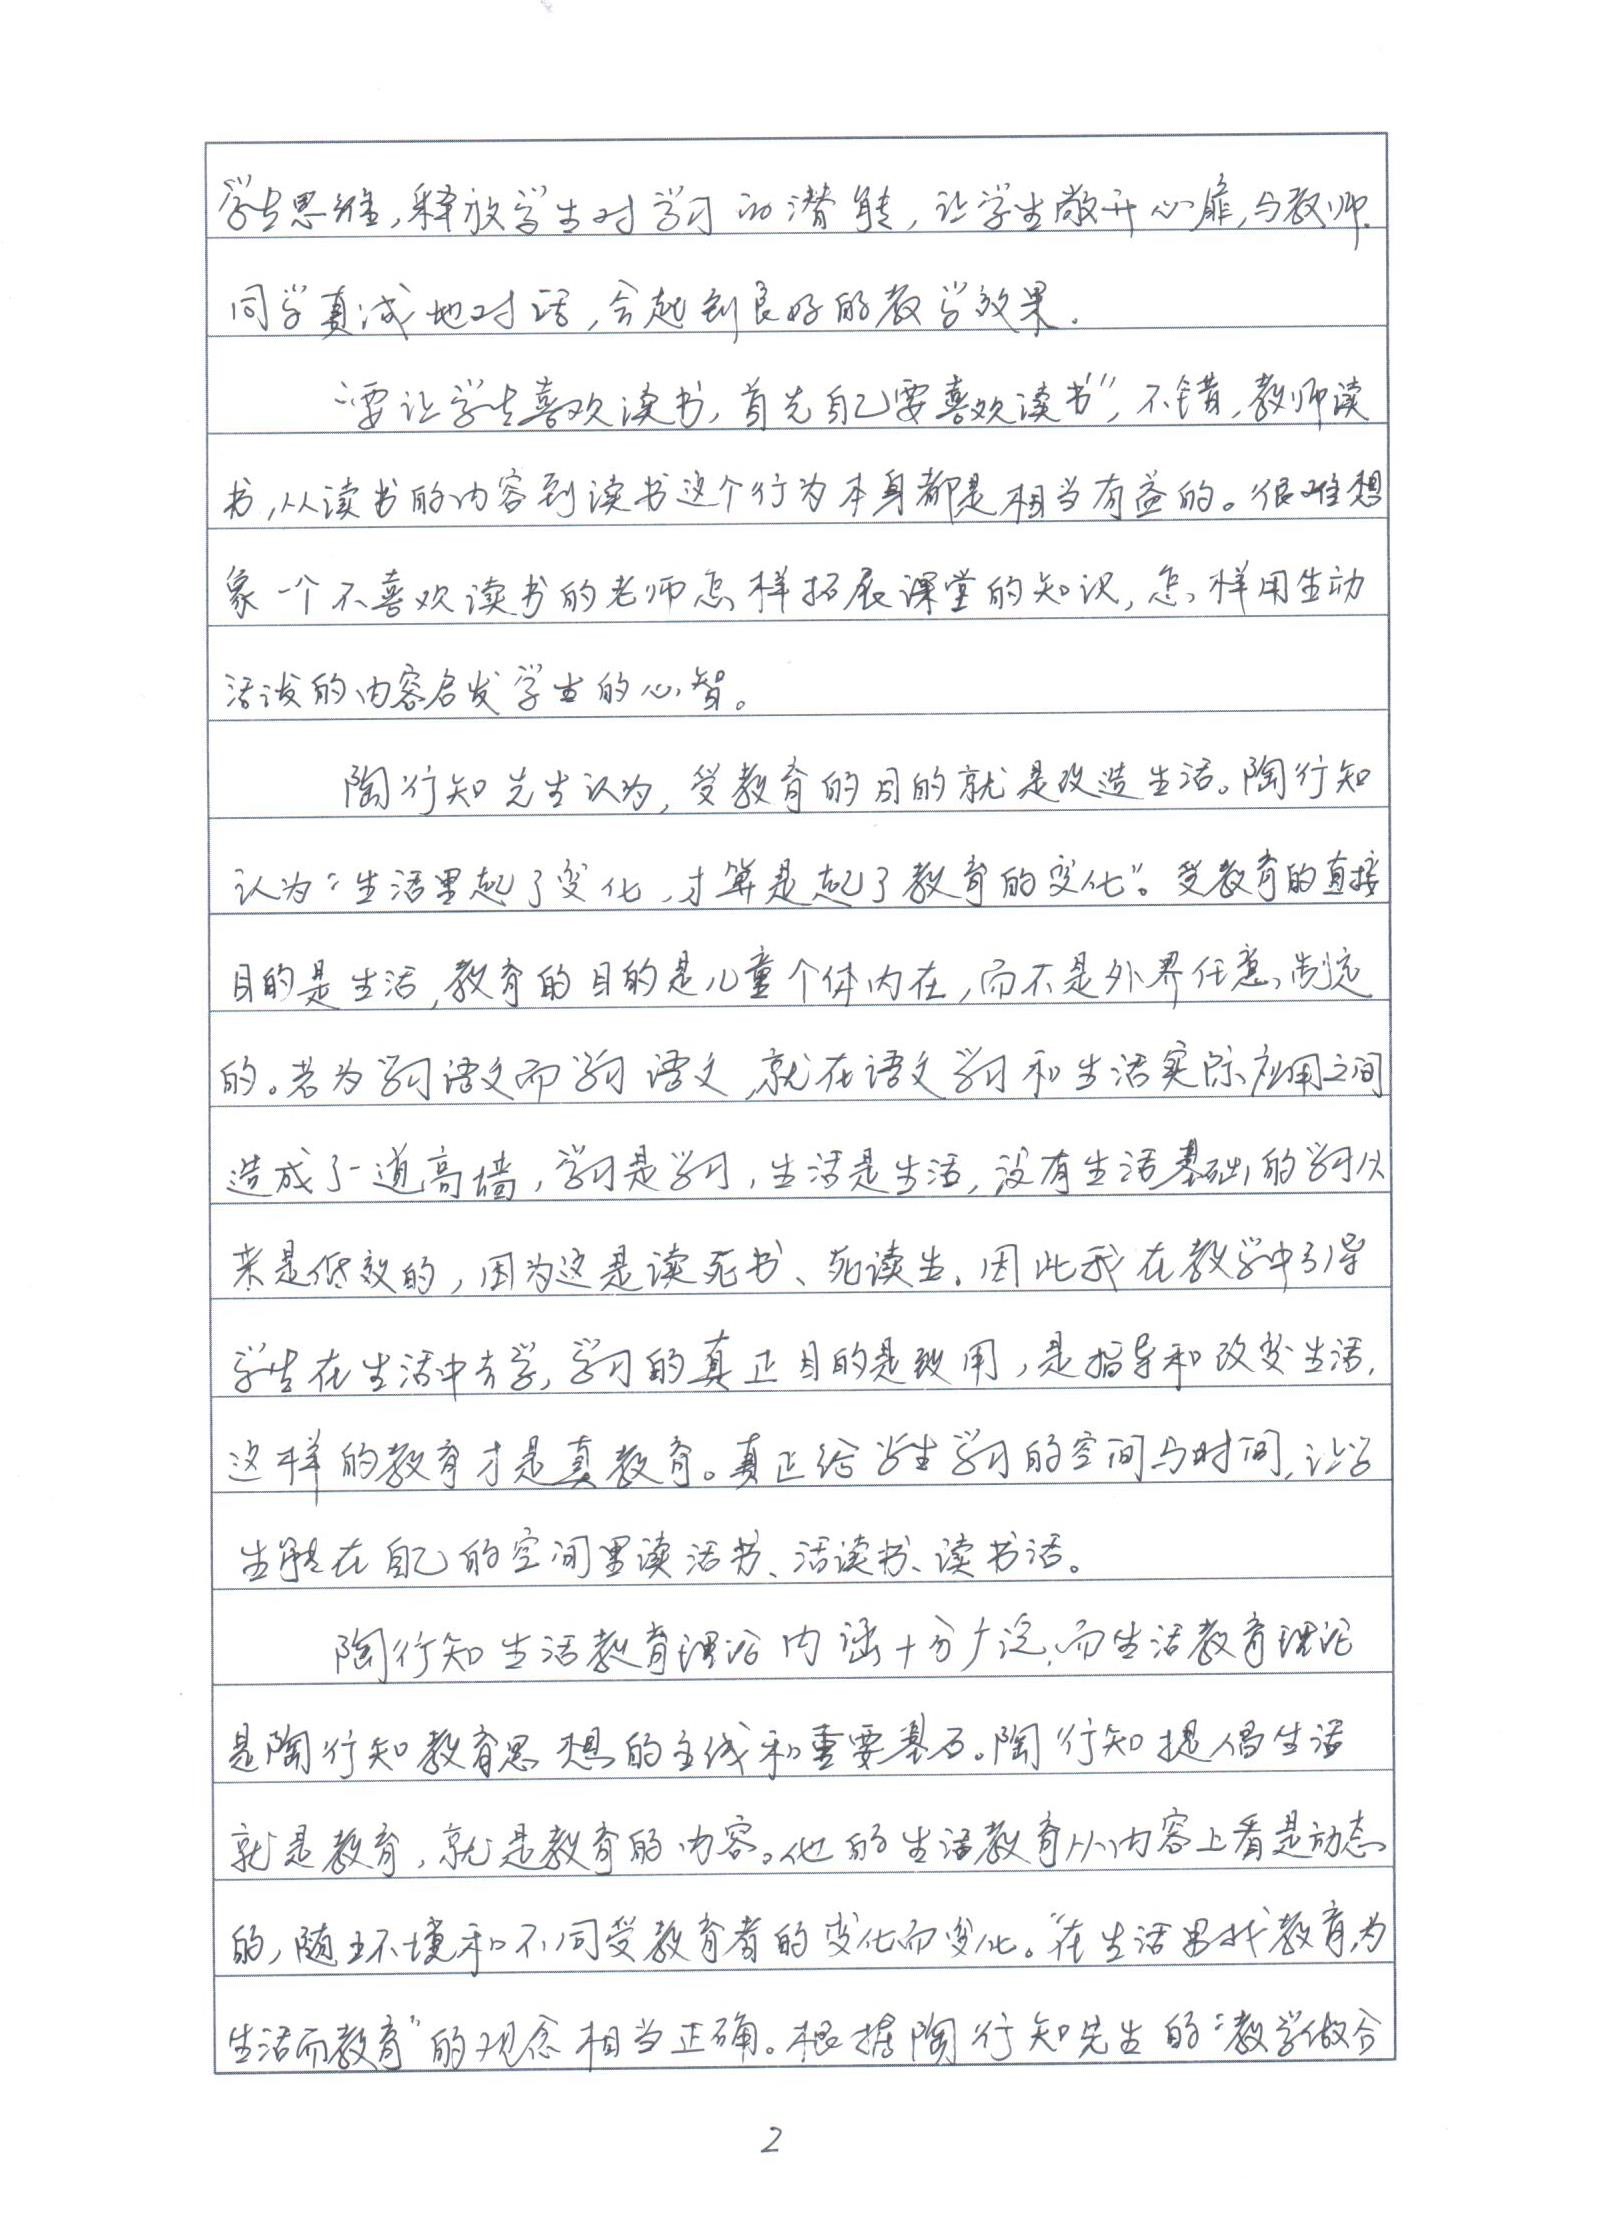 学生思维,释放学生对学习的潜能,让学生敞开心扉,与教师.
同学真诚地对话,会起到良好的教学效果.
“要让学生喜欢读书,首先自己要喜欢读书”,不错,教师读
书,从读书的内容到读书这个行为本身都是相当有益的。很难想
象一个不喜欢读书的老师怎样拓展课堂的知识,怎样用生动
活泼的内容启发学生的心智。
陶行知先生认为,受教育的目的就是改造生活。陶行知
认为“生活里起了变化,才算是起了教育的变化”。受教育的直接
目的是生活,教育的目的是儿童个体内在,而不是外界任意制定
的。若为学习语文而学习语文,就在语文学习和生活实际应用之间
造成了一道高墙,学习是学习,生活是生活,没有生活基础的学习从
来是低效的,因为这是读死书、死读生.因此我在教学中引导
学生在生活中去学,学习的真正目的是致用,是指导和改变生活,
这样的教育才是真教育。真正给学生学习的空间与时间,让学
生能在自己的空间里读活书、活读书、读书活。
陶行知生活教育理论内涵十分广泛,而生活教育理论
是陶行知教育思想的主线和重要基石。陶行知提倡生活
就是教育,就是教育的内容。他的生活教育从内容上看是动态
的,随环境和不同受教育者的变化而变化。“在生活里找教育,为
生活而教育”的观念相当正确。根据陶行知先生的“教学做合
2